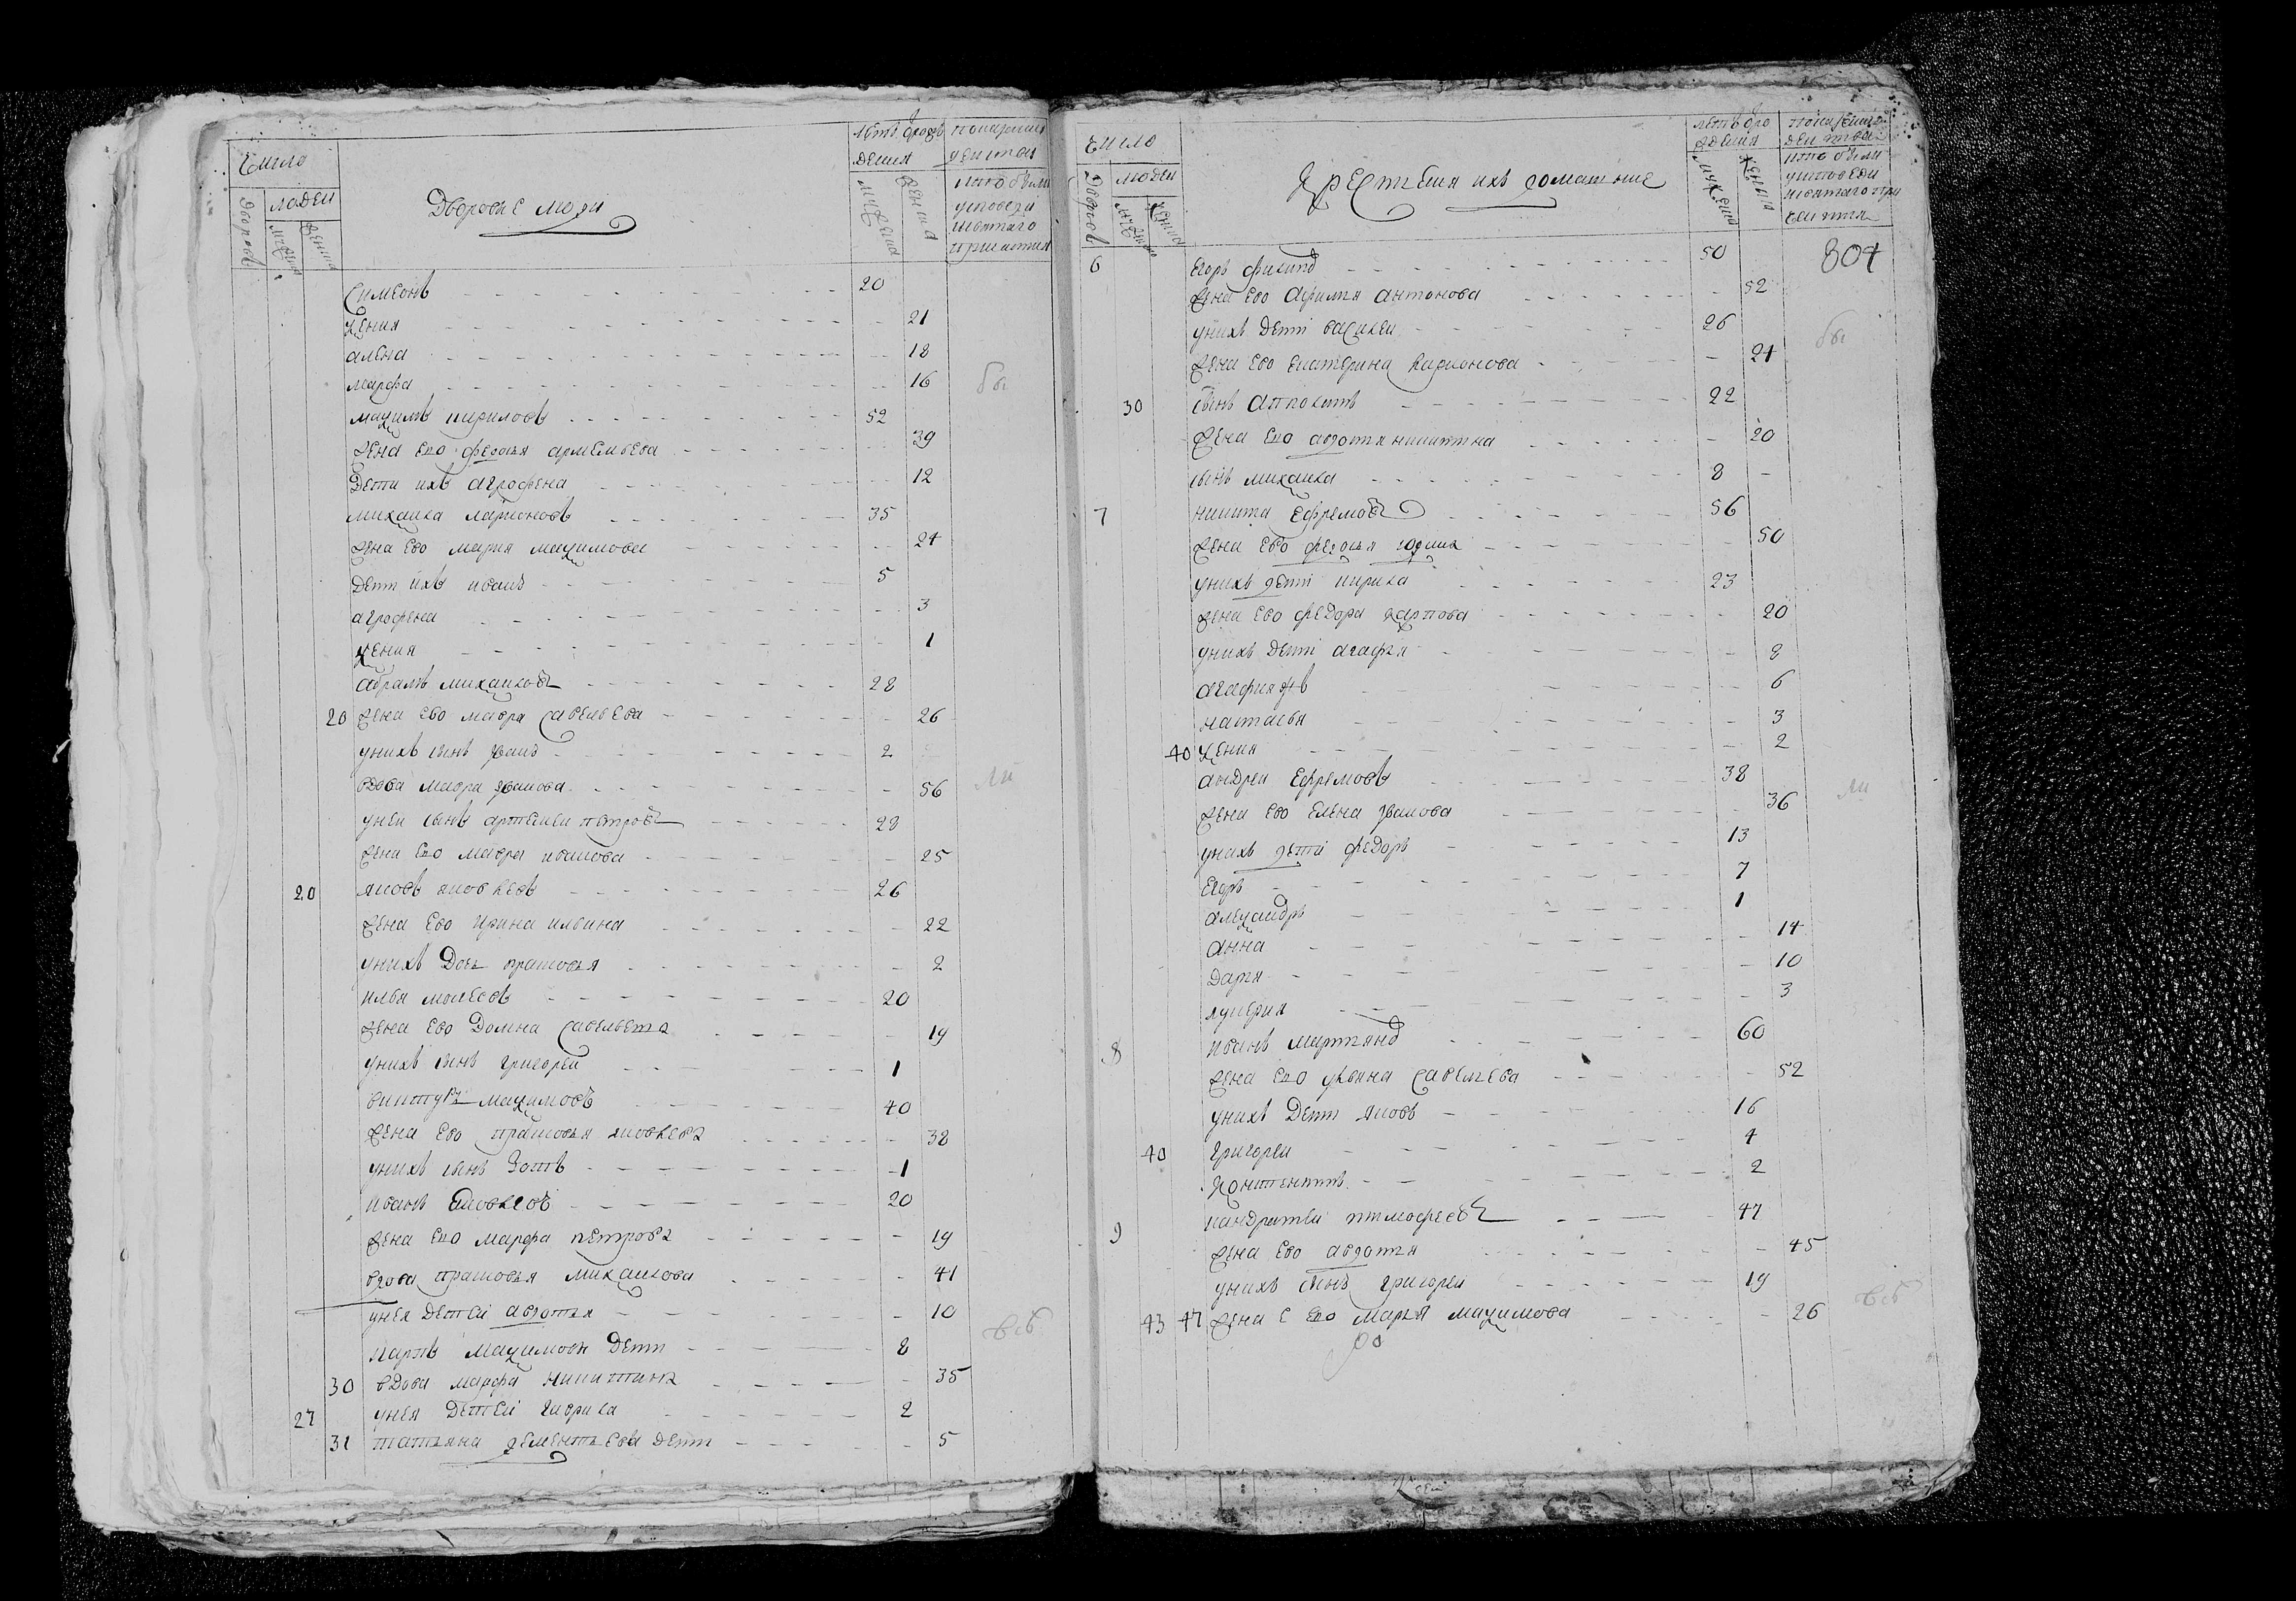 Число
Дворовъ
людей
Дворовые люди
летъ отрож
дения
показание
Симеонъ 20
Ксения 21
алена 18
марфа 16
бы
максимъ кириловъ 52
жена ево федосья артемьева 39
Дети ихъ агрофена 12
михаила ларионовъ 35
жена ево мария максимова 24
Дети ихъ иванъ 5
агрофена 3
ксения 1
абрамъ михаиловъ 28
20 жена ево мавра савельева 26
унихъ сынъ иванъ 2
вдова мавра иванова 56
ли
унеи сынъ артемеи петровъ 28
жена ево мавра иванова 25
20 яковъ яковлевъ 26
жена ево ирина ильина 22
унихъ Дочь прасковья 2
илья моисеевъ 20
жена ево Домна савельева 19
унихъ сынъ григореи 1
максимовъ 40
жена ево прасковья яковлева 38
унихъ сынъ зотъ 1
иванъ яковлевъ 20
жена ево марфа петрова 19
вдова прасковья михаилова 41
унея Детеи авдотья 10
всѣ
карпъ максимовы Дети 8
30 вдова марфа никитина 35
27 унея Детеи гаврила 2
31 татьяна дементьева Дети 5
Число
Дворовъ
людеи
мужеска
женска
крестьяня ихъ
летъ отро
ждения
мужеска
женска
804
6 Егоръ филипо 50
жена ево афимья антонова 52
унихъ Дети василеи 26
бы
жена ево екатерина ларионова 24
30 сынъ антонъ 22
жена ево авдотья никитина 20
сынъ михаила 8
7 никита ефремовъ 56
жена ево федосья 50
унихъ дети кирила 23
жена ево федора карпова 20
унихъ Дети агафья 8
агафия 6
настасья 3
40 ксения 2
андреи ефремовъ 38
ли
жена ево елена иванова 36
унихъ дети федоръ 13
Егоръ 7
александръ 1
анна 14
Дарья 10
лукерия 3
8 иванъ мартыно 60
жена ево ульяна савельева 52
унихъ Дети яковъ 16
40 григореи 4
константинъ 2
9 кандратеи тимофеевъ 47
жена ево авдотья 45
унихъ сынъ григореи 19
всѣ
43 47 жена ево марья максимова 26